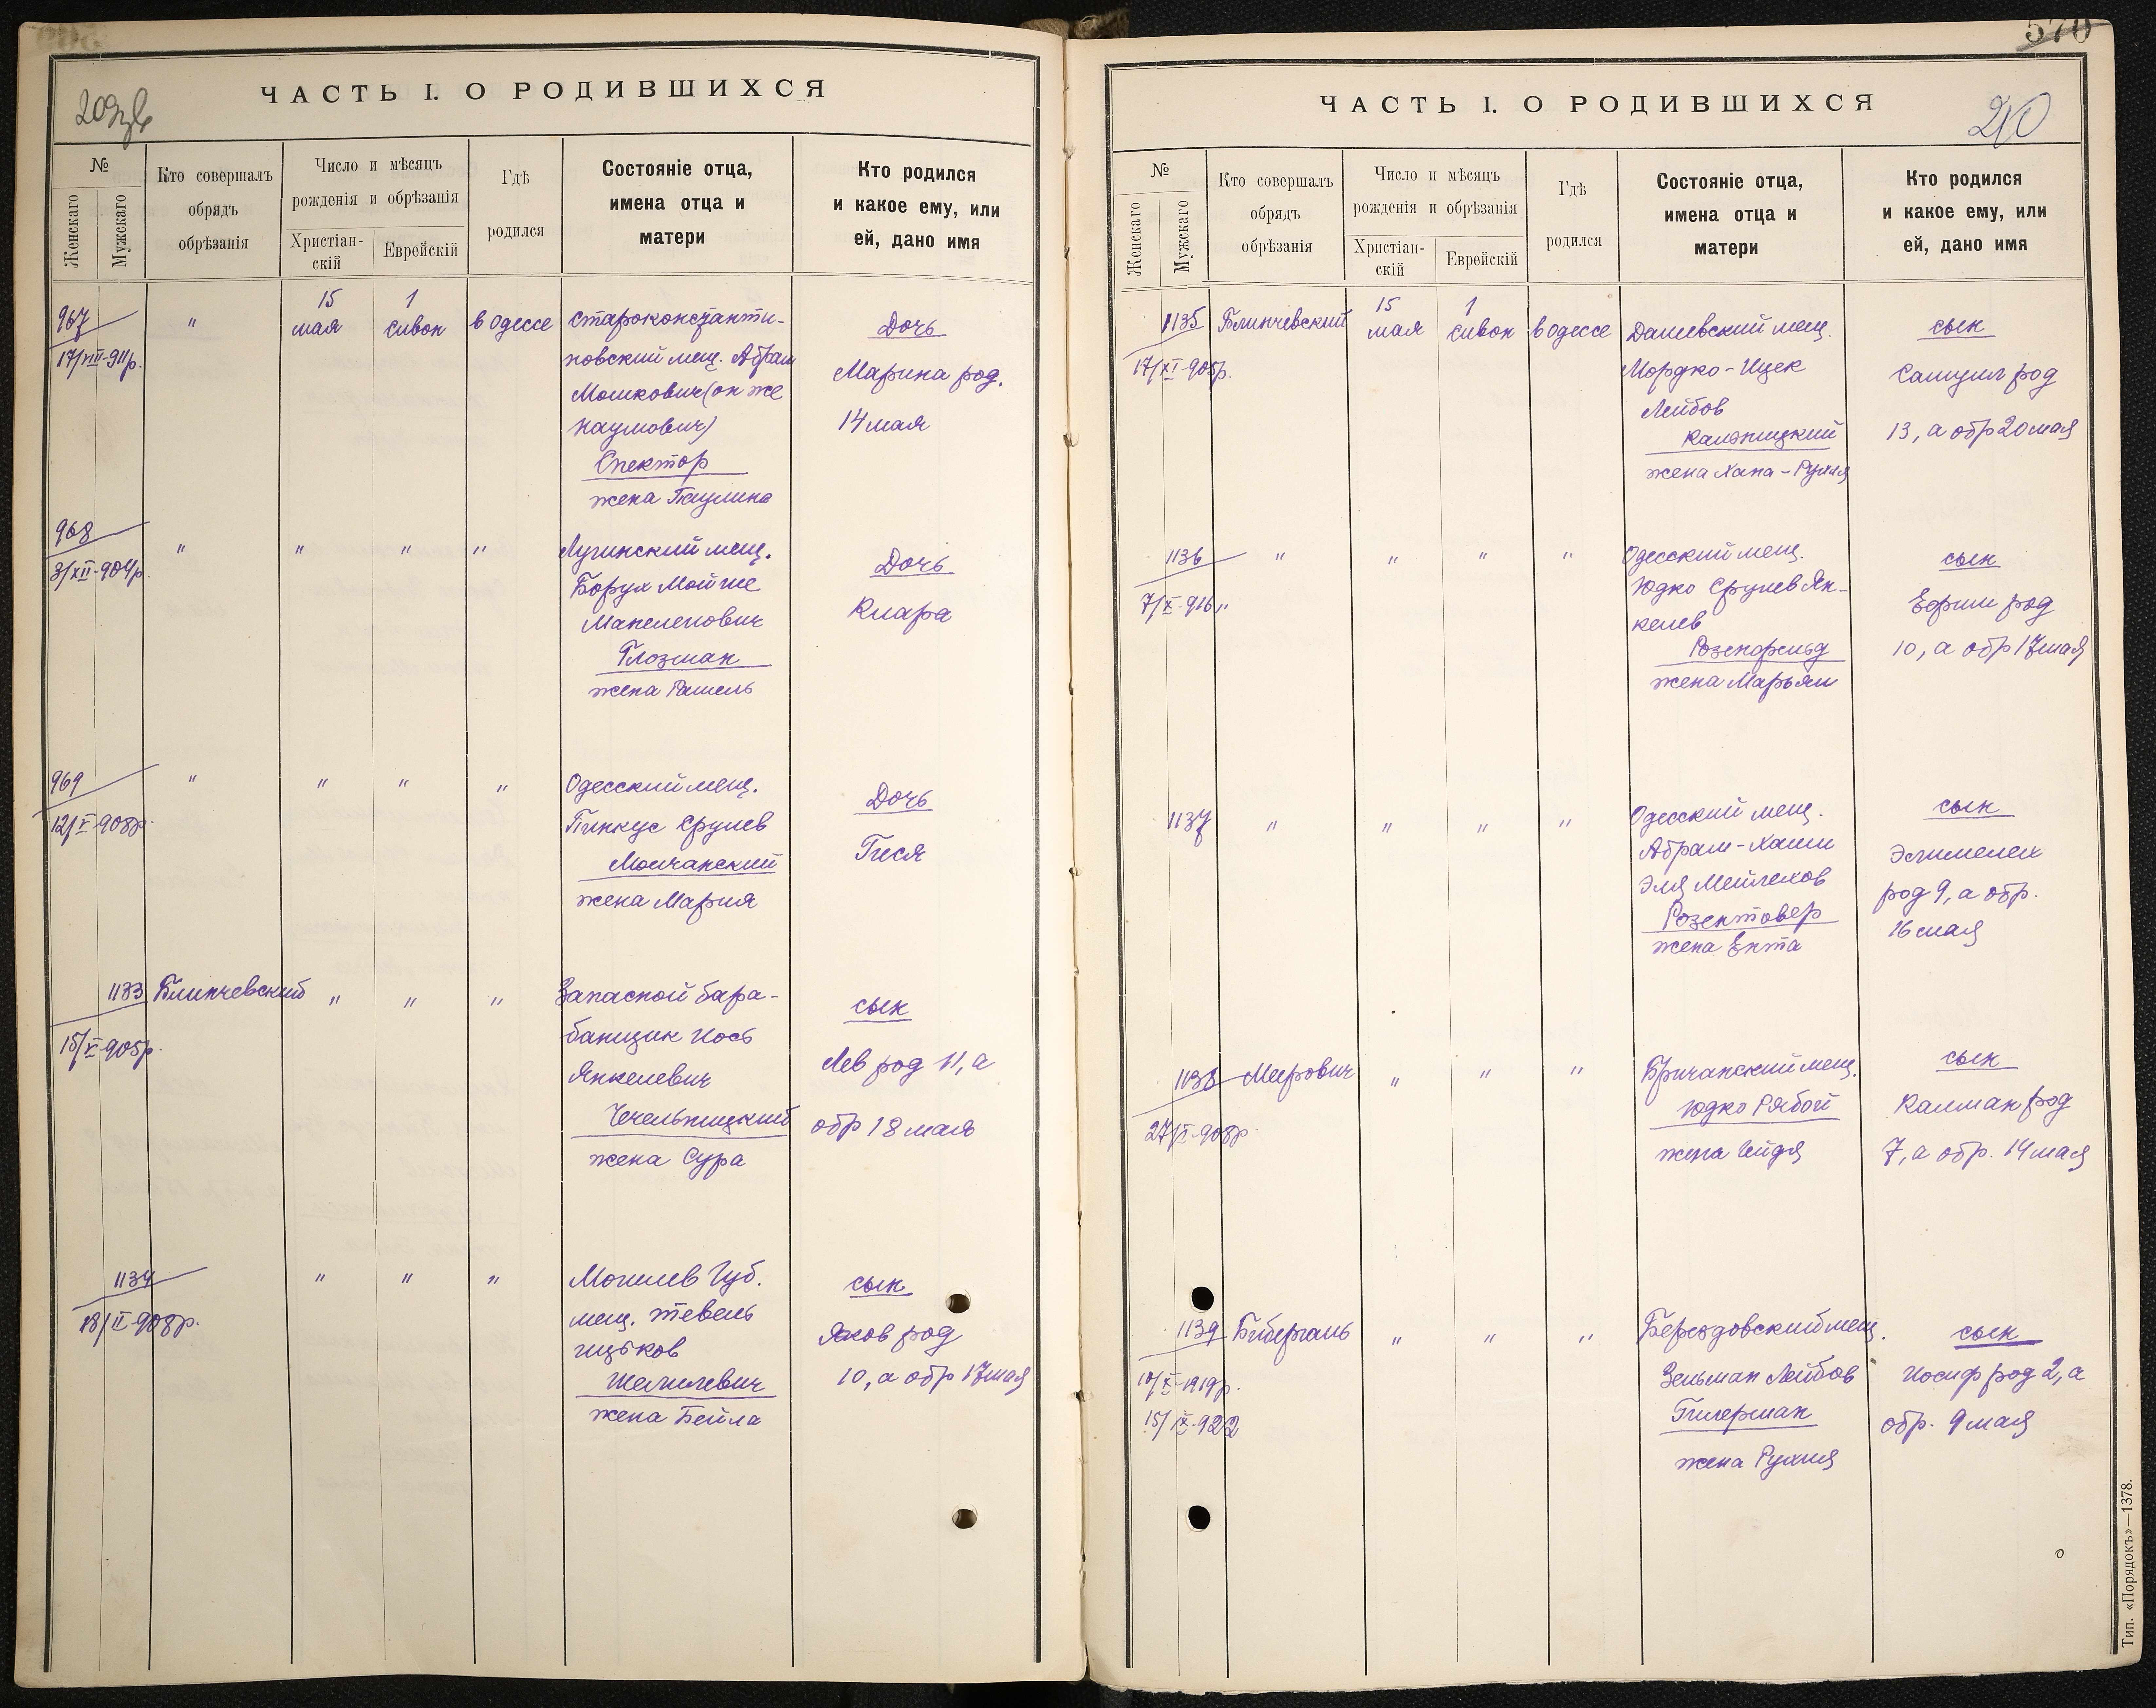 ЧАСТЬ I. О РОДИВШИХСЯ
209
№
Женскаго
Мужскаго
Кто совершалъ
обрядъ
обрѣзанія
Число и мѣсяцъ
рожденія и обрѣзанія
Христіан-
скій
Еврейскій
Гдѣ
родился
Состояніе отца,
имена отца и
матери
Кто родился
и какое ему, или
ей, дано имя
967
17/VIII-911р.
"
15
мая
1
Сивон
в Одессе
Староконстанти-
новский мещ. Абрам
Мошкович (он же
Наумович)
Спектор
жена Паулина
Дочь
Марина род.
14 мая
968
3/XII-904р.
"
"
"
"
Лугинский мещ.
Борух Мойше
Глозман
жена Рашель
Дочь
Клара
969
12/V-908р.
"
"
"
"
Одесский мещ.
Пинкус Срулев
Молчанский
жена Мария
Дочь
Гися
1133
15/V-905р.
Блинчевский
"
"
"
Запасной бара-
банщик Иось
Янкелевич
Чечельницкий
жена Сура
сын
Лев род 11, а
обр 18 мая
1134
18/II-908р.
"
"
"
Могилев Губ.
мещ. Тевель
Ицьков
жена Бейла
сын
Яков род
10, а обр 17 мая
570
ЧАСТЬ I. О РОДИВШИХСЯ
210
№
Женскаго
Мужскаго
Кто совершалъ
обрядъ
обрѣзанія
Число и мѣсяцъ
рожденія и обрѣзанія
Христіан-
скій
Еврейскій
Гдѣ
родился
Состояніе отца,
имена отца и
матери
Кто родился
и какое ему, или
ей, дано имя
1135
17/XI-905р.
Блинчевский
15
мая
1
Сивон
в Одессе
Дашевский мещ.
Мордко-Ицек
Лейбов
жена Хана-Рухля
сын
Самуил род
13, а обр 20 мая
1136
7/X-916"
"
"
"
"
Одесский мещ.
Юдко Срулев Ян-
келев
Розенфельд
жена Марьям
сын
Ефрим род
10, а обр 17 мая
1137
"
"
"
"
Одесский мещ.
Абрам-Хаим
Эля Мейлехов
Розентовер
жена Ента
сын
Элимелех
род 9, а обр.
16 мая
1138
Мирович
"
"
"
Бричанский мещ.
Юдко Рябой
жена
сын
Калман род
7, а обр. 14 мая
1139
10/X-1919р.
15/IX-922
Бибергаль
"
"
"
Берездовский мещ.
Зельман Лейбов
жена Рухля
сын
Иосиф род 2, а
обр. 9 мая
Тип. «Порядокъ»—1378.